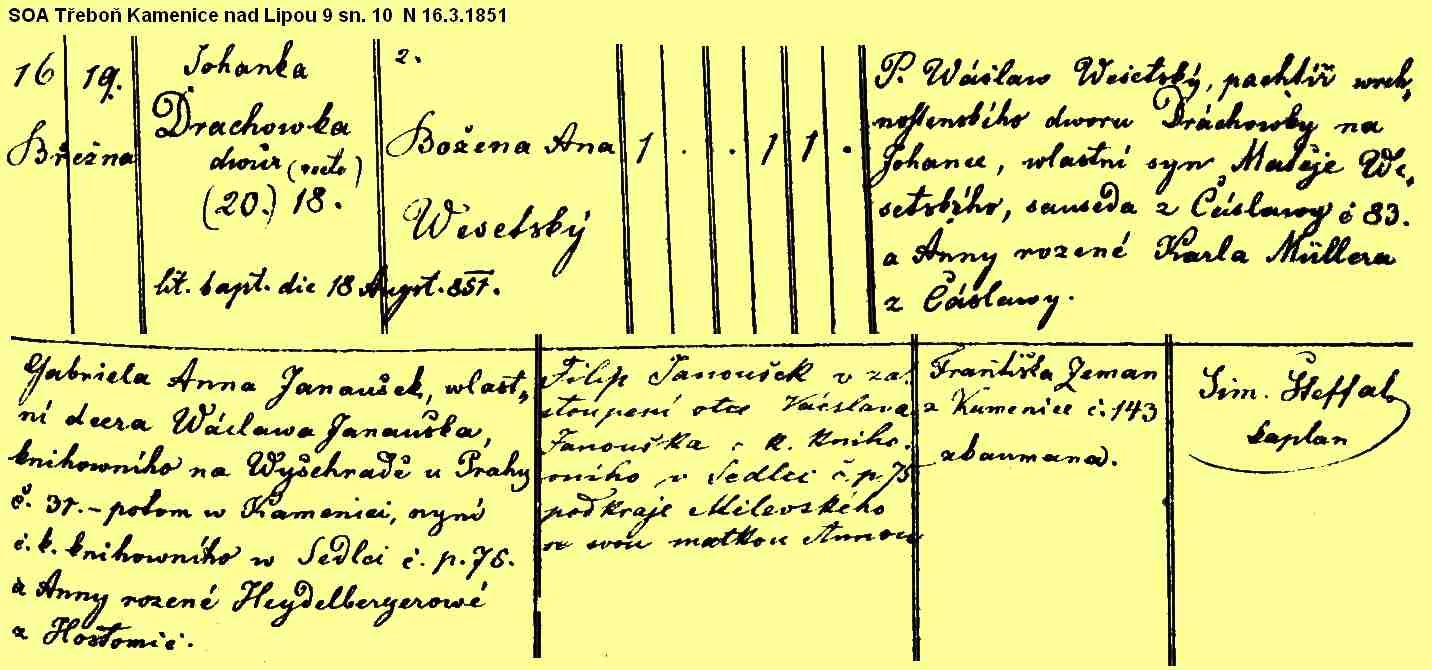 SOA Třeboň Kamenice nad Lipou 9 sn. 10 N 16.3.1851
16
Března
19.
Johanka
Drachowka
dwůr (recte)
(20.) 18.
lit. bapt. die 18 Augst. 857.
2.
Božena Ana
Wesetský
1 . . 1 1 .
P. Wáslaw Wesetský, pachtíř wrch,
nostenského dworu Dráchowky na
Johance, wlastní syn Matěje We,
setského, sauseda z Čáslawy č 83.
a Anny rozené Karla Müllera
z Čáslawy.
Gabriela Anna Janaušek, wlast,
ní dcera Wáclawa Janauška,
knihowního na Wyšehradě u Prahy
č. 37. – potom w Kamenici, nyní
c. k. knihowního w Sedlci č. p. 75.
a Anny rozené Heydelbergerowé
z Hostomic.
Filip Janoušek v za,
stoupení otce Václava
Janouška c. k. kniho,
vního v Sedlci č. p. 75
podkraje Milevského
se svou matkou Annou
Františka Zeman
z Kamenice č. 143
zkaumana.
Sim. Steffal
kaplan